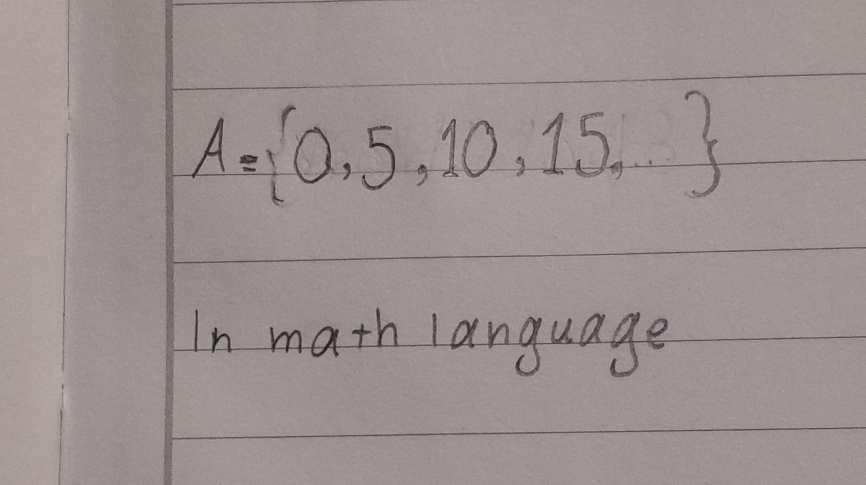 A={0,5,10,15,...}
In math language